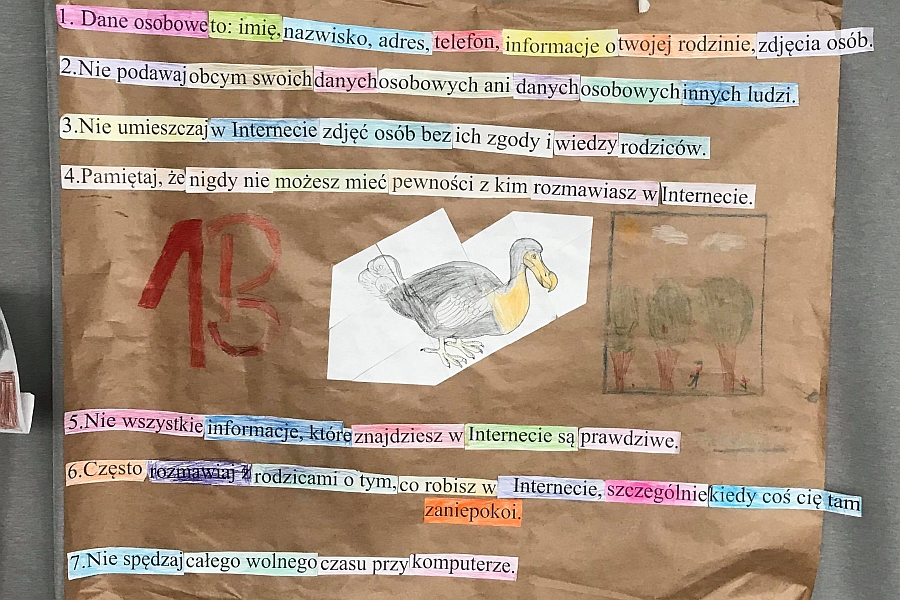 1. Dane osobowe to: imię, nazwisko, adres, telefon, informacje o twojej rodzinie, zdjęcia osób.
2.Nie podawaj obcym swoich danych osobowych ani danych osobowych innych ludzi.
3.Nie umieszczaj w Internecie zdjęć osób bez ich zgody i wiedzy rodziców.
4.Pamiętaj, że nigdy nie możesz mieć pewności z kim rozmawiasz w Internecie.
1B
5.Nie wszystkie informacje, które znajdziesz w Internecie są prawdziwe.
6.Często rozmawiaj z rodzicami o tym, co robisz w Internecie, szczególnie kiedy coś cię tam
zaniepokoi.
7.Nie spędzaj całego wolnego czasu przy komputerze.